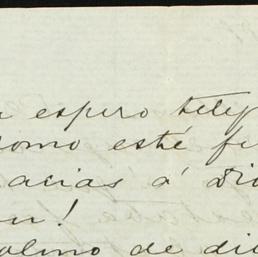 espero teleg
como esté fe
acias á Dio
olino de di